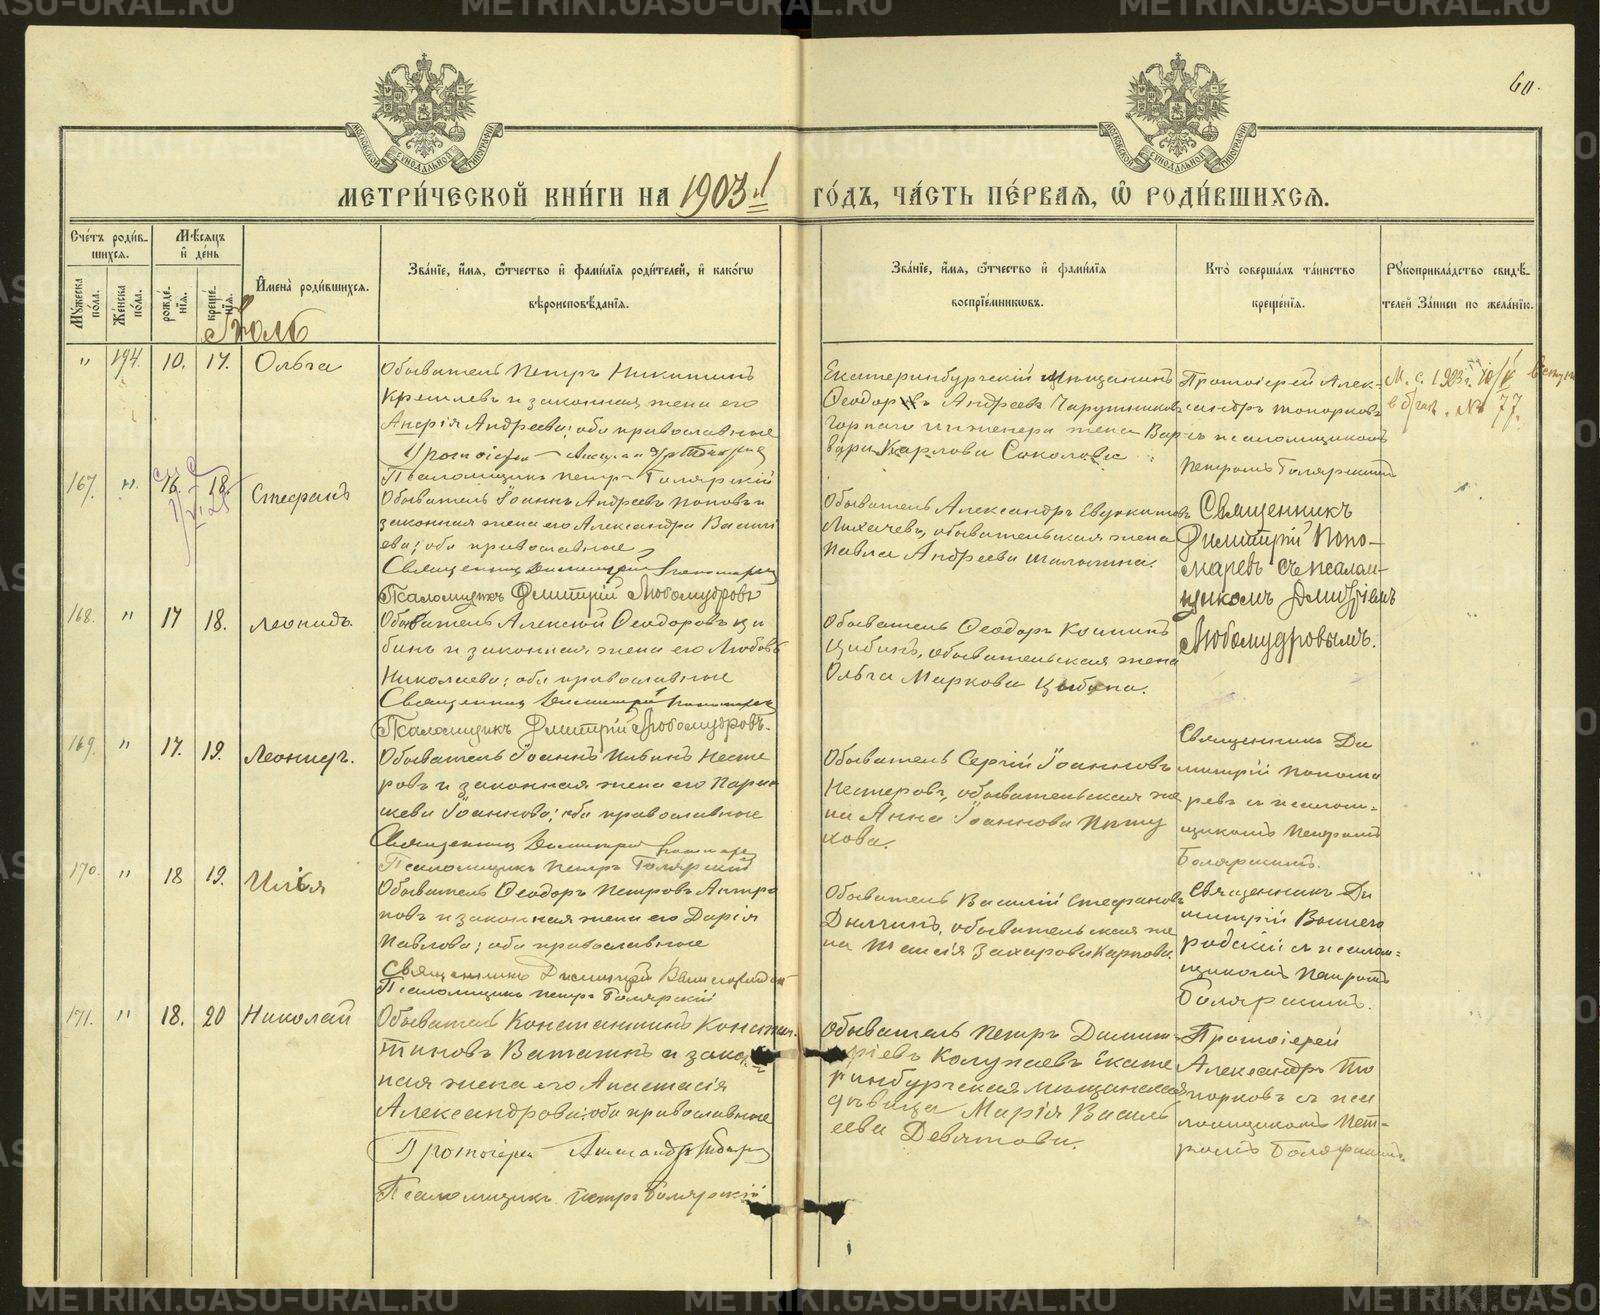 METRIKI.GASO-URAL.RU
60.
МОСКОВСКОЙ СѴНОДАЛЬНОЙ ТИПОГРАФІИ
МОСКОВСКОЙ СѴНОДАЛЬНОЙ ТИПОГРАФІИ
МЕТРИ́ЧЕСКОЙ КНИ́ГИ НА 1903й ГО́ДЪ, ЧА́СТЬ ПЕ́РВАЯ, Ѽ РОДИ́ВШИХСѦ.
Сче́тъ роди́в-
шихсѧ.
Мꙋжеска по́ла.
Же́нска по́ла.
Мѣ́сѧцъ
и҆ де́нь
рожде́нїѧ.
креще́нїѧ.
И҆мена̀ роди́вшихсѧ.
Зва́нїе, и҆́мѧ, ѻ҆́тчество и҆ фами́лїѧ роди́телей, и҆ како́гѡ
вѣроисповѣ́данїѧ.
Зва́нїе, и҆́мѧ, ѻ҆́тчество и҆ фами́лїѧ
воспрїе́мникѡвъ.
Кто̀ соверша́лъ та́инство
креще́нїѧ.
Рꙋкоприкла́дство свидѣ́-
телей За́писи по жела́нїю.
Іюль
" 194. 10. 17. Ольга
Обыватель Петръ Никитинъ
Кремлевъ и законная жена его
Андреева; оба православные
Протоіерей
Псаломщикъ Петръ Боярскій
Екатеринбургскій мѣщанинъ
Ѳеодоръ Андреевъ Чарушниковъ
Горнаго инженера жена Вар-
вара Карлова Соколова
Протоіерей Алек-
сандръ Топорковъ
съ псаломщикомъ
Петромъ Боярскимъ
в брак. № 77.
167. " 16. 18. Стефанъ
Обыватель Іоаннъ Андреевъ Поповъ и
законная жена его Александра Василь
ева; оба православные
Священникъ Димитрій Пономаревъ
Псаломщикъ Дмитрій Любомудровъ
Обыватель Александръ Евдокимовъ
Лихачевъ, обывательская жена
Павла Андреева
Священникъ
Димитрій Поно-
маревъ съ псалом-
щикомъ Дмитріемъ
Любомудровымъ.
168. " 17 18. Леонидъ.
Обыватель Алексѣй Ѳеодоровъ Ци
бинъ и законная жена его Любовь
Николаева; оба православные
Священникъ Димитрій Пономаревъ
Псаломщикъ Дмитрій Любомудровъ.
Обыватель Ѳеодоръ Косминъ
Цибинъ, обывательская жена
Ольга Маркова Цибина.
169. " 17. 19. Леонидъ.
Обыватель Іоаннъ Ильинъ Несте
ровъ и законная жена его Парас
кева Іоаннова; оба православные
Священникъ Димитрій Пономаревъ
Псаломщикъ Петръ Боярскій
Обыватель Сергій Іоанновъ
Нестеровъ, обывательская же
на Анна Іоаннова Пѣту
хова.
Священникъ Ди
митрій Понома
ревъ съ псалом-
щикомъ Петромъ
Боярскимъ.
170. " 18 19. Илія
Обыватель Ѳеодоръ Петровъ Антро
повъ и законная жена его Дарія
Павлова; оба православные
Священникъ Димитрій Вышегородскій
Псаломщикъ Петръ Боярскій
Обыватель Василій Стефановъ
обывательская же
на Таисія Захарова Карпова.
Священникъ Ди
митрій Вышего
родскій съ псалом-
щикомъ Петромъ
Боярскимъ.
171. " 18. 20 Николай
Обыватель Константинъ Констан-
тиновъ Ватагинъ и закон
ная жена его Анастасія
Александрова; оба православные
Протоіерей Александръ Топорковъ
Псаломщикъ Петръ Боярскій
Обыватель Петръ Димит-
ріевъ Екате
ринбургская мѣщанская
дѣвица Марія Василь
ева Девятова.
Протоіерей
Александръ То
порковъ съ пса
ломщикомъ Пет-
ромъ Боярскимъ.
METRIKI.GASO-URAL.RU